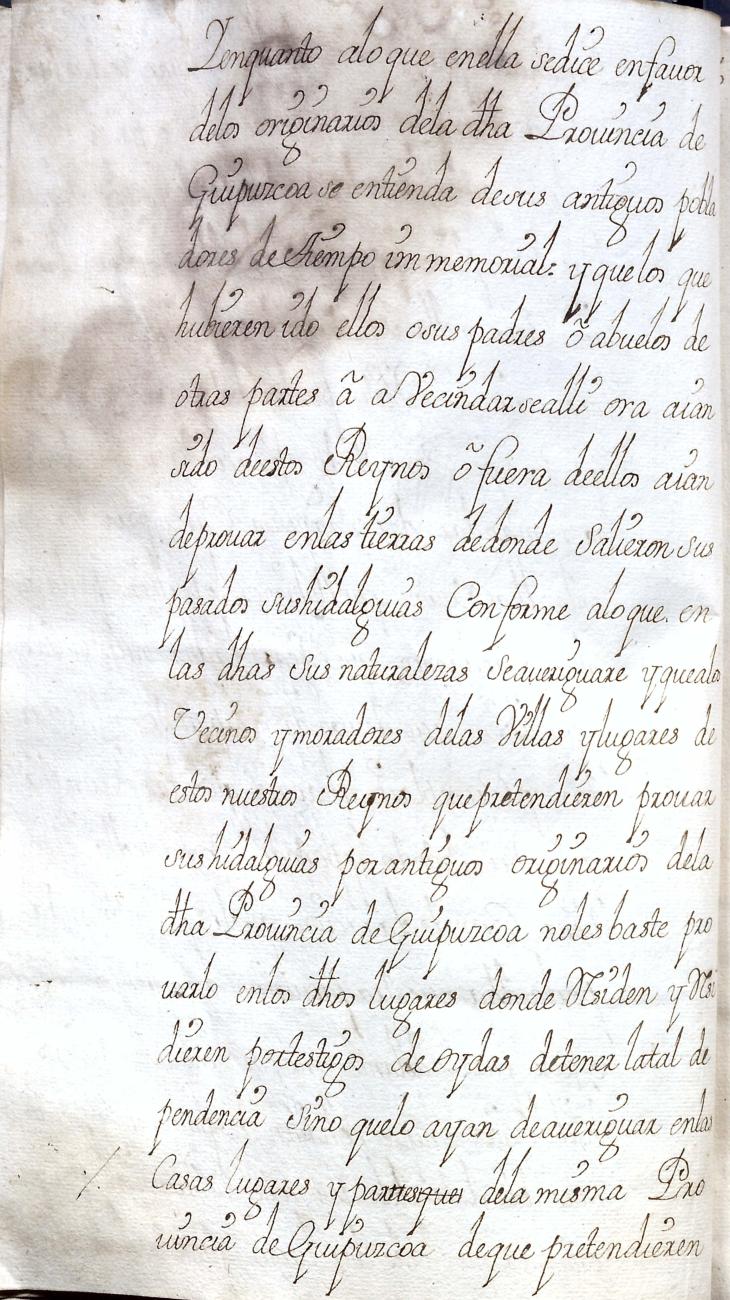 Yenquanto alo que enella sedice enfavor
delos originarios dela dha Prouincia de
Guipuzcoa se entienda desus antiguos pobla
dores de tiempo immemorial: y quelos que
hubieren ido ellos osus padres õ abuelos de
otras partes ã a Vecindarsealli ora aian
sido deestos Reynos õ fuera deellos aian
deprouar enlas tierras dedonde Salieron sus
pasados sushidalguias Conforme aloque. en
las dhas sus naturalezas Seaueriguare yquealos
Vecinos ymoradores delas Villas ylugares de
estos nuestros Reynos quepretendieren prouar
sus hidalguias porantiguos originarios dela
dha Prouincia de Guipuzcoa noles baste pro
uarlo enlos dhos lugares donde Residen y Resi
dieren portestigos de oydas detener latal de
pendencia Sino quelo ayan deaueriguar enlas
Casas lugares y partesque dela misma Pro
uincia de Guipuzcoa deque pretendieren